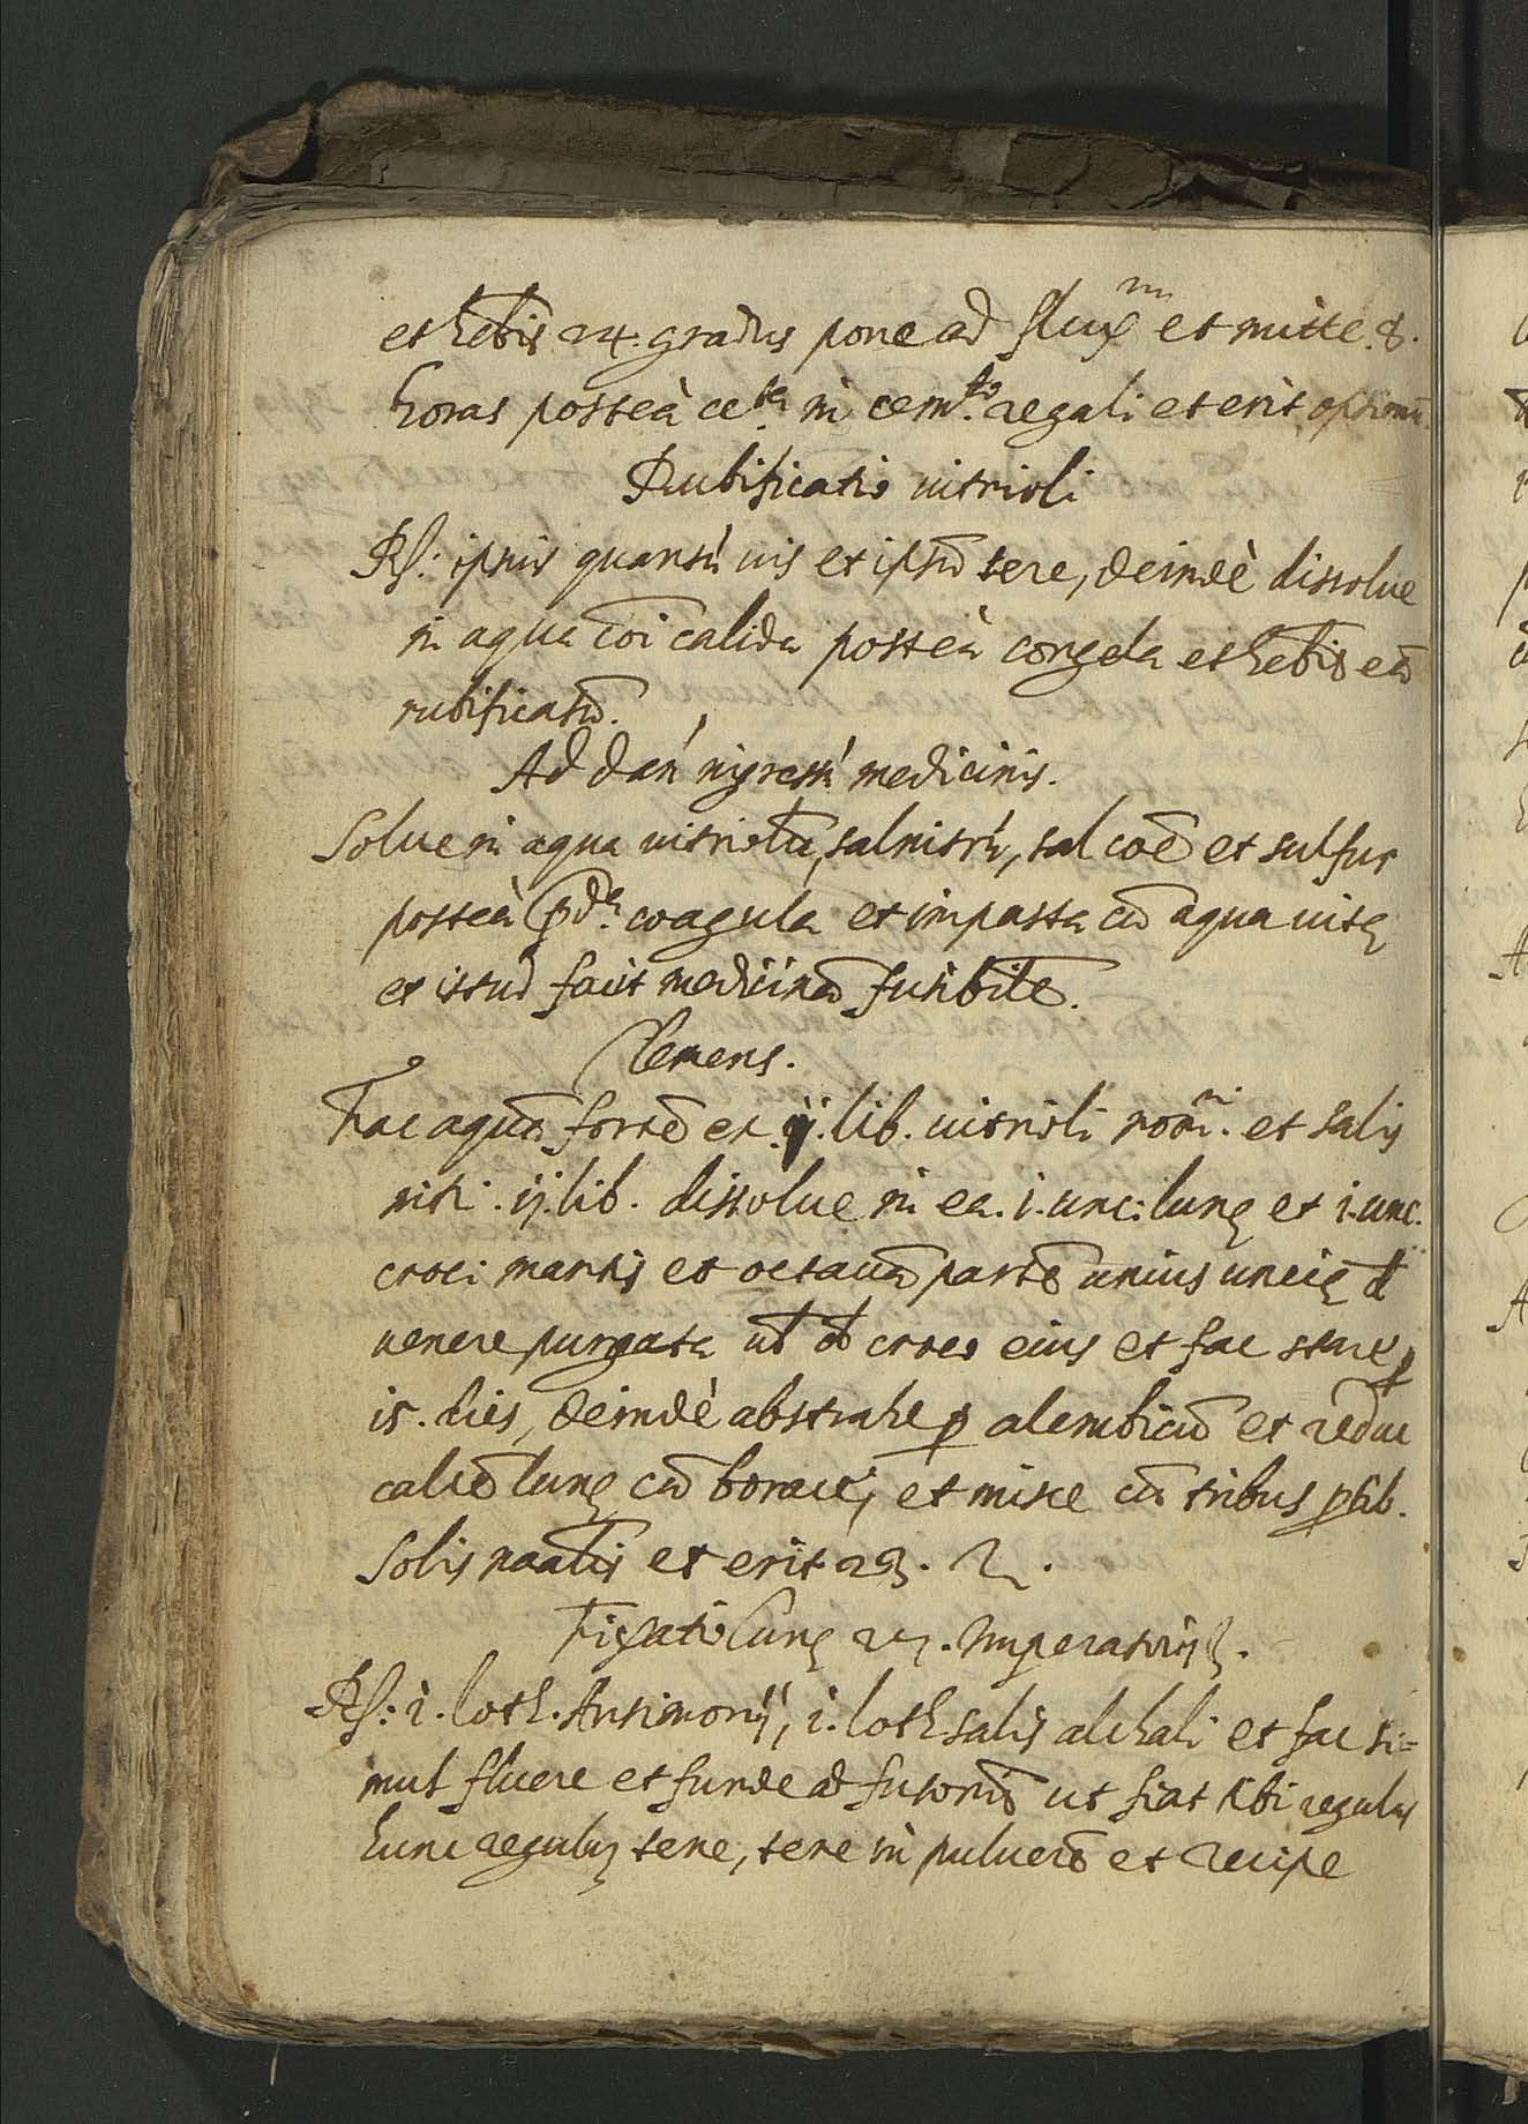 et hebis 24. gradus pone ad flux^m et mitte 8.
horas posteà in cem^to regali et erit optimũ
Rubificatio uitrioli
R: ipsius quantũ uis et ipsũ tere, deindè dissolue
in aqua coĩ calida posteà congela et hebis eũ
rubificatũ.
Ad dan̄ ingressũ medicinis.
Solue in aqua uitriolũ, salnitrũ, sal coẽ et sulfur
posteà p̄d^a coagula et impasta cũ aqua uitę
et istud facit medicinã fusibilẽ.
Clemens.
Fac aquã fortẽ ex ij. lib. uitrioli romĩ. et salis
nitri. ij. lib. dissolue in ea. i. unc: lunę et i. unc.
croci martis et octauã partẽ unius uncię de
uenere purgata uł de croco eius et fac stare ꝑ
is. dies, deindè abstrahe ꝑ alembicũ et reduc
calcẽ lunę cũ borace, et misce cũ tribus ptib.
Solis naalis et erit 23.
Fixatio lunę Imperatoris
R: i. loth. Antimonij, i. loth salis alchali et fac si=
mul fluere et funde ad fusoriũ ut fiat tibi regulus
hunc regulũ tene, tere in puluerẽ et recipe